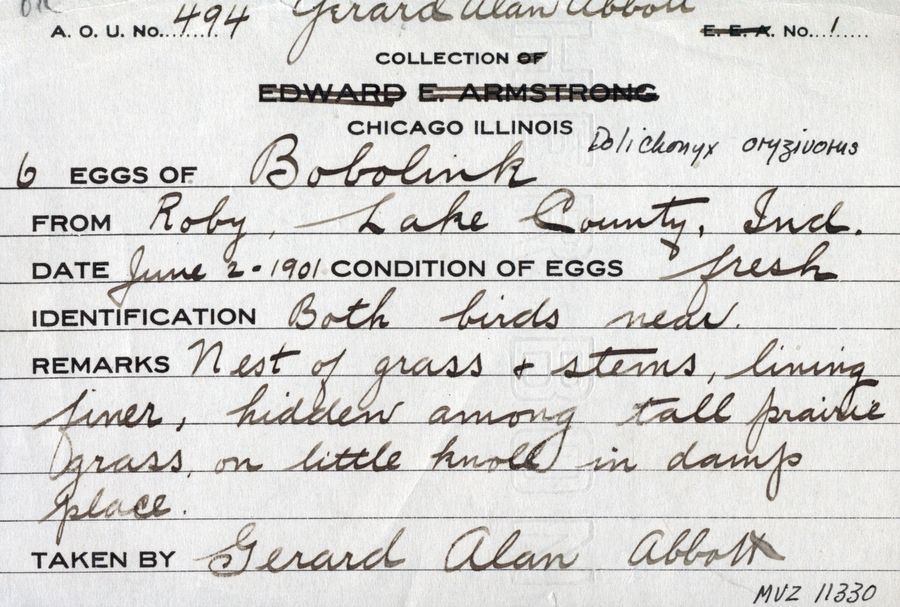 OK
A. O. U. No. 494 Gerard Alan Abbott E. E. A. No. 1
COLLECTION OF
EDWARD E. ARMSTRONG
CHICAGO ILLINOIS Dolichonyx oryzivorus
6 EGGS OF Bobolink
FROM Roby, Lake County, Ind.
DATE June 2-1901 CONDITION OF EGGS fresh
IDENTIFICATION Both birds near.
REMARKS Nest of grass & stems, lining
finer, hidden among tall prairie
grass, on little knoll in damp
place.
TAKEN BY Gerard Alan Abbott
MVZ 11330